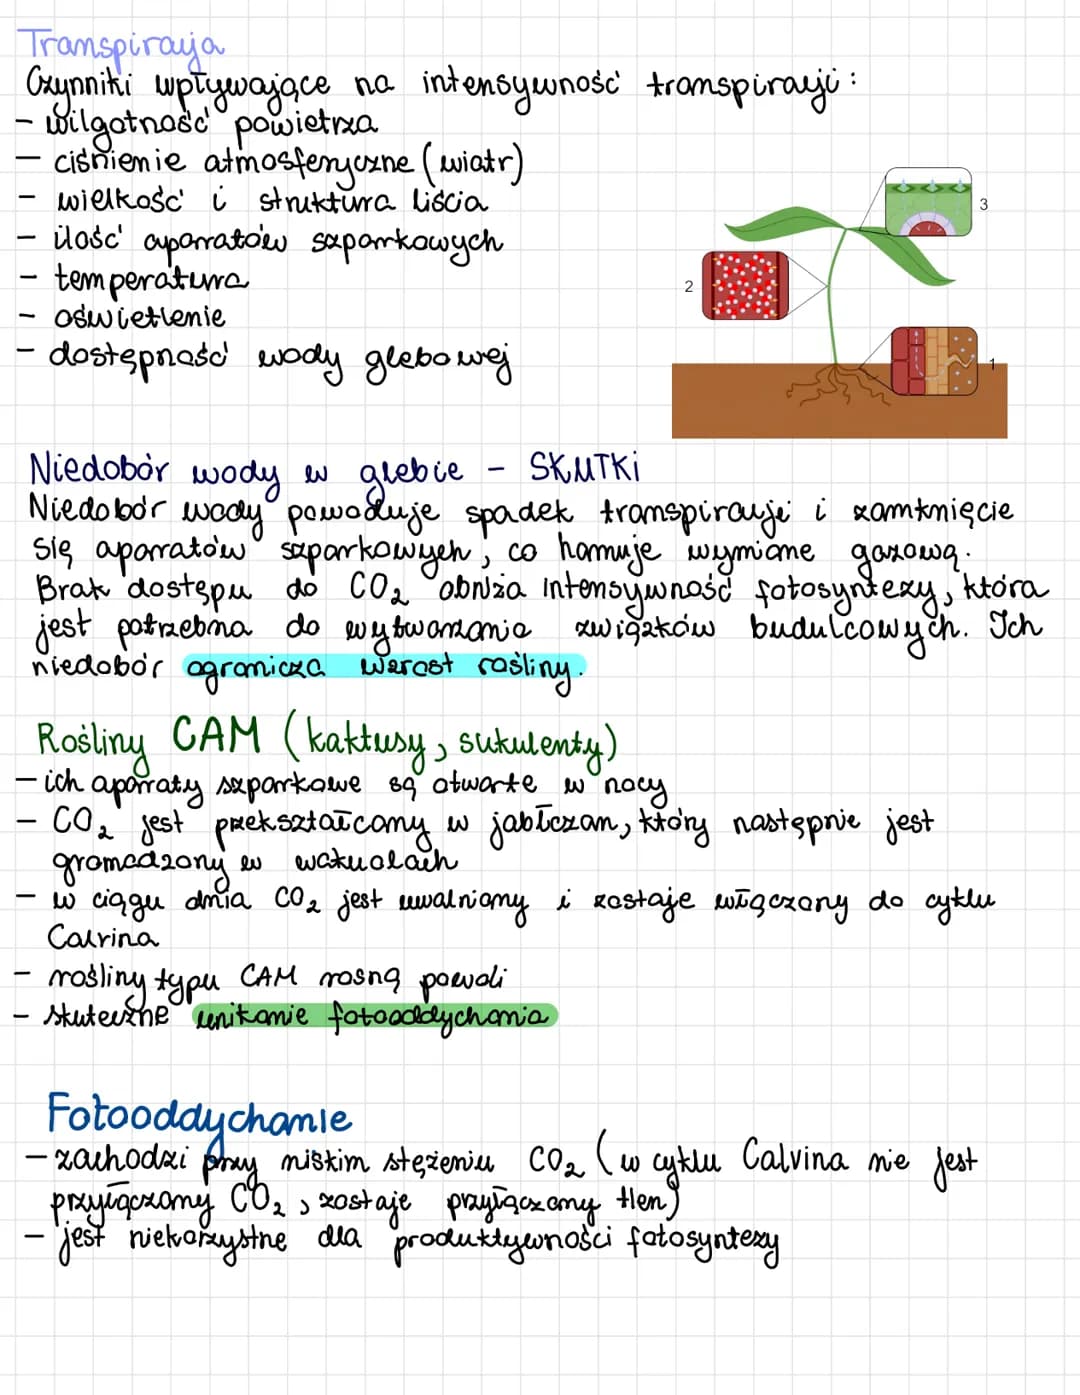 Transpiracja
Czynniki wpływające na intensywność transpiracji:
- wilgotność powietrza
- ciśnienie atmosferyczne (wiatr)
- wielkość i struktura liścia
- ilość aparatów szparkowych
- temperatura
- oświetlenie
- dostępność wody glebowej
3
2
1
Niedobór wody w glebie - SKUTKI
Niedobór wody powoduje spadek transpiracji i zamknięcie
się aparatów szparkowych, co hamuje wymianę gazową.
Brak dostępu do CO₂ obniża intensywność fotosyntezy, która
jest potrzebna do wytwarzania związków budulcowych. Ich
niedobór ogranicza wzrost rośliny.
Rośliny CAM (kaktusy, sukulenty)
- ich aparaty szparkowe są otwarte w nocy
- CO₂ jest przekształcany w jabłczan, który następnie jest
gromadzony w wakuolach
- w ciągu dnia CO₂ jest uwalniany i zostaje włączony do cyklu
Calvina
- rośliny typu CAM rosną powoli
- skuteczne unikanie fotooddychania
Fotooddychanie
- zachodzi przy niskim stężeniu CO₂ (w cyklu Calvina nie jest
przyłączamy CO₂, zostaje przyłączamy tlen)
- jest niekorzystne dla produktywności fotosyntezy